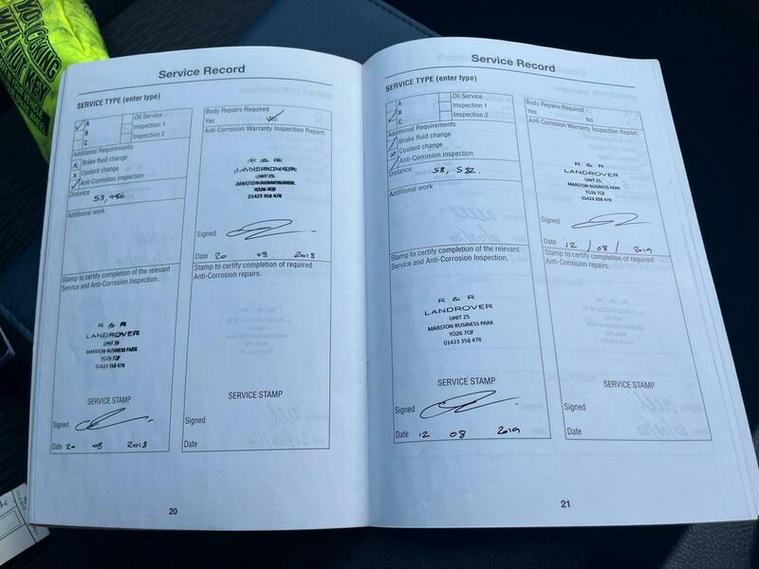 Service Record
SERVICE TYPE (enter type)
A
B
C
Oil Service
Inspection 1
Inspection 2
Additional Requirements
Brake fluid change
Coolant change
Anti-Corrosion Inspection
Distance
53,486
Additional work
Stamp to certify completion of the relevant
Service and Anti-Corrosion Inspection.
R & R
LANDROVER
UNIT 25
MARSTON BUSINESS PARK
YO26 7QF
01423 358 478
SERVICE STAMP
Signed
Date 20 08 2018
Body Repairs Required
Yes No
Anti-Corrosion Warranty Inspection Report:
R & R
LANDROVER
UNIT 25
MARSTON BUSINESS PARK
YO26 7QF
01423 358 478
Signed
Date 20 08 2018
Stamp to certify completion of required
Anti-Corrosion repairs.
SERVICE STAMP
Signed
Date
20
Service Record
SERVICE TYPE (enter type)
A
B
C
Oil Service
Inspection 1
Inspection 2
Additional Requirements
Brake fluid change
Coolant change
Anti-Corrosion Inspection
Distance
58,582.
Additional work
Stamp to certify completion of the relevant
Service and Anti-Corrosion Inspection.
R & R
LANDROVER
UNIT 25
MARSTON BUSINESS PARK
YO26 7QF
01423 358 478
SERVICE STAMP
Signed
Date 12 08 2019
Body Repairs Required
Yes No
Anti-Corrosion Warranty Inspection Report:
R & R
LANDROVER
UNIT 25
MARSTON BUSINESS PARK
YO26 7QF
01423 358 478
Signed
Date 12 / 08 / 2019
Stamp to certify completion of required
Anti-Corrosion repairs.
SERVICE STAMP
Signed
Date
21